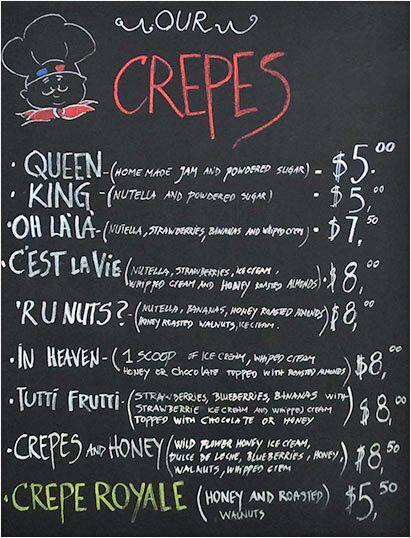 OUR
CREPES
• QUEEN - (HOME MADE JAM AND POWDERED SUGAR) - $5.00
• KING - (NUTELLA AND POWDER SUGAR) - $5,00
• OH LÀ LÀ - (NUTELLA, STRAWBERRIES, BANANAS AND WHIPED CREEM) - $7,50
• C'EST LA VIE (NUTELLA, STRAWBERRIES, ICE CREAM,
WHIPPED CREAM AND HONEY ROASTED ALMONDS) • $8,00
'R U NUTS? • (NUTELLA, BANANAS, HONEY ROASTED ALMONDS
HONEY ROASTED WALNUTS, ICE CREAM. ) $8,00
• IN HEAVEN - (1 SCOOP OF ICE CREAM, WHIPED CREAM
HONEY OR CHOCOLATE TOPPED WITH ROASTED ALMONDS) $8,00
• TUTTI FRUTTI - (STRAWBERRIES, BLUEBERRIES, BANANAS WITH
STRAWBERRIE ICE CREAM AND WHIPPED CREAM
TOPPED WITH CHOCOLATE OR HONEY) $8,00
• CREPES AND HONEY (WILD FLOWER HONEY ICE CREAM,
DULCE DE LECHE, BLUEBERRIES, HONEY,
WALNUTS, WHIPPED CREM) $8,50
• CREPE ROYALE (HONEY AND ROASTED
WALNUTS) $5,50